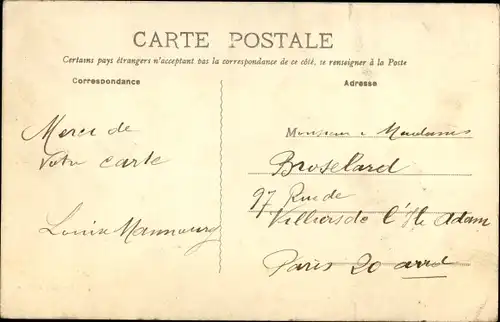 CARTE POSTALE
Certains pays étrangers n'acceptant pas la correspondance de ce côté, se renseigner à la Poste
Correspondance
Adresse
Merci de
Votre carte
Louise
Monsieur & Madames
Broselard
97 Rue de
Villiers de l'Ile Adam
Paris 20 arrd